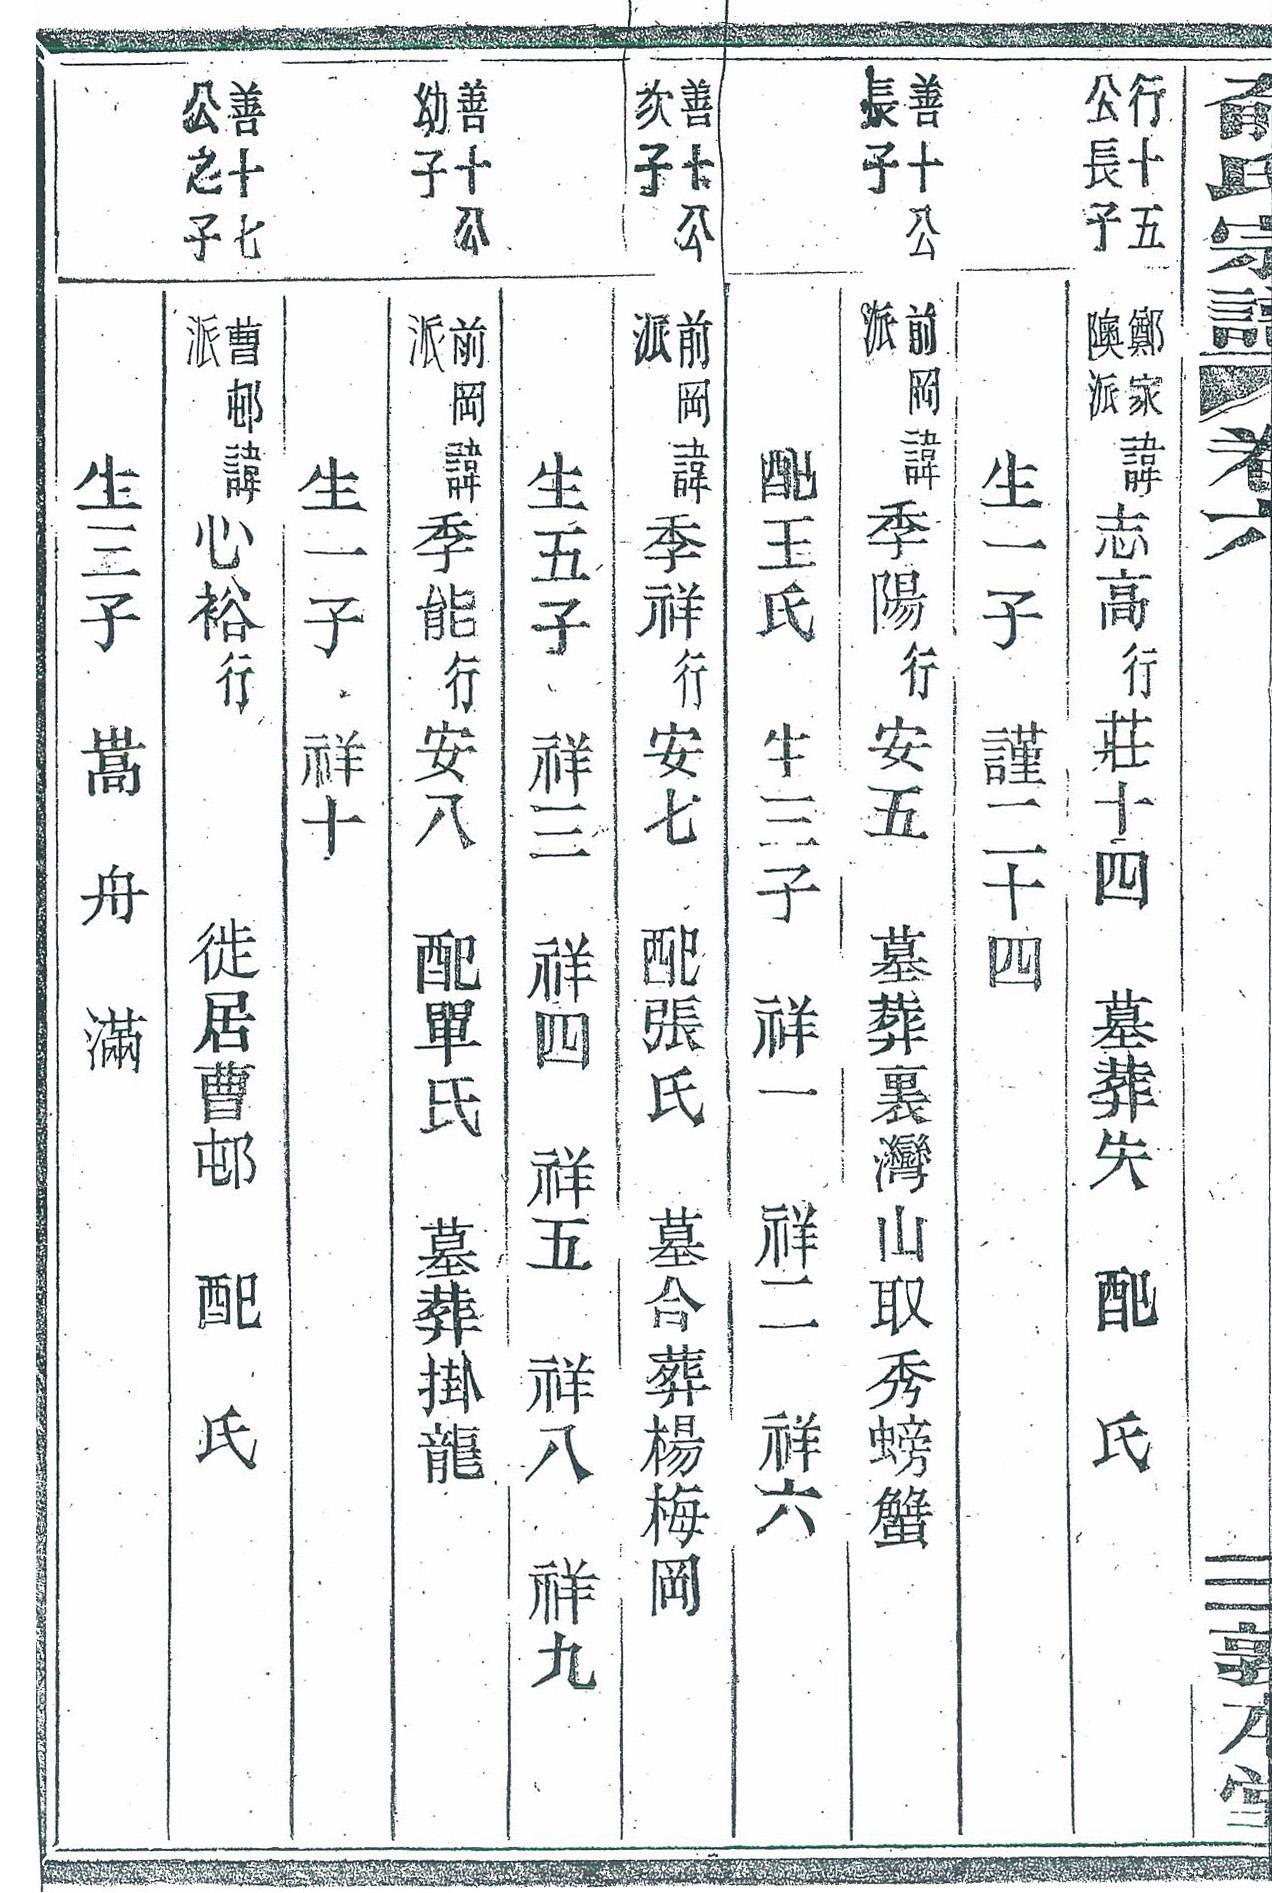 俞氏宗譜 卷六 三 敦本堂
行十五
公長子
鄭家
隩派
諱志高行莊十四 墓葬失 配 氏
生一子 謹二十四
善十公
長子
前岡
派
諱季陽行安五 墓葬裏灣山取秀螃蟹
配王氏 生三子 祥一 祥二 祥六
善十公
次子
前岡
派
諱季祥行安七 配張氏 墓合葬楊梅岡
生五子 祥三 祥四 祥五 祥八 祥九
善十公
幼子
前岡
派
諱季能行安八 配單氏 墓葬掛龍
生一子 祥十
善十七
公之子
曹邨
派
諱心裕行 徙居曹邨 配 氏
生三子 嵩 舟 滿